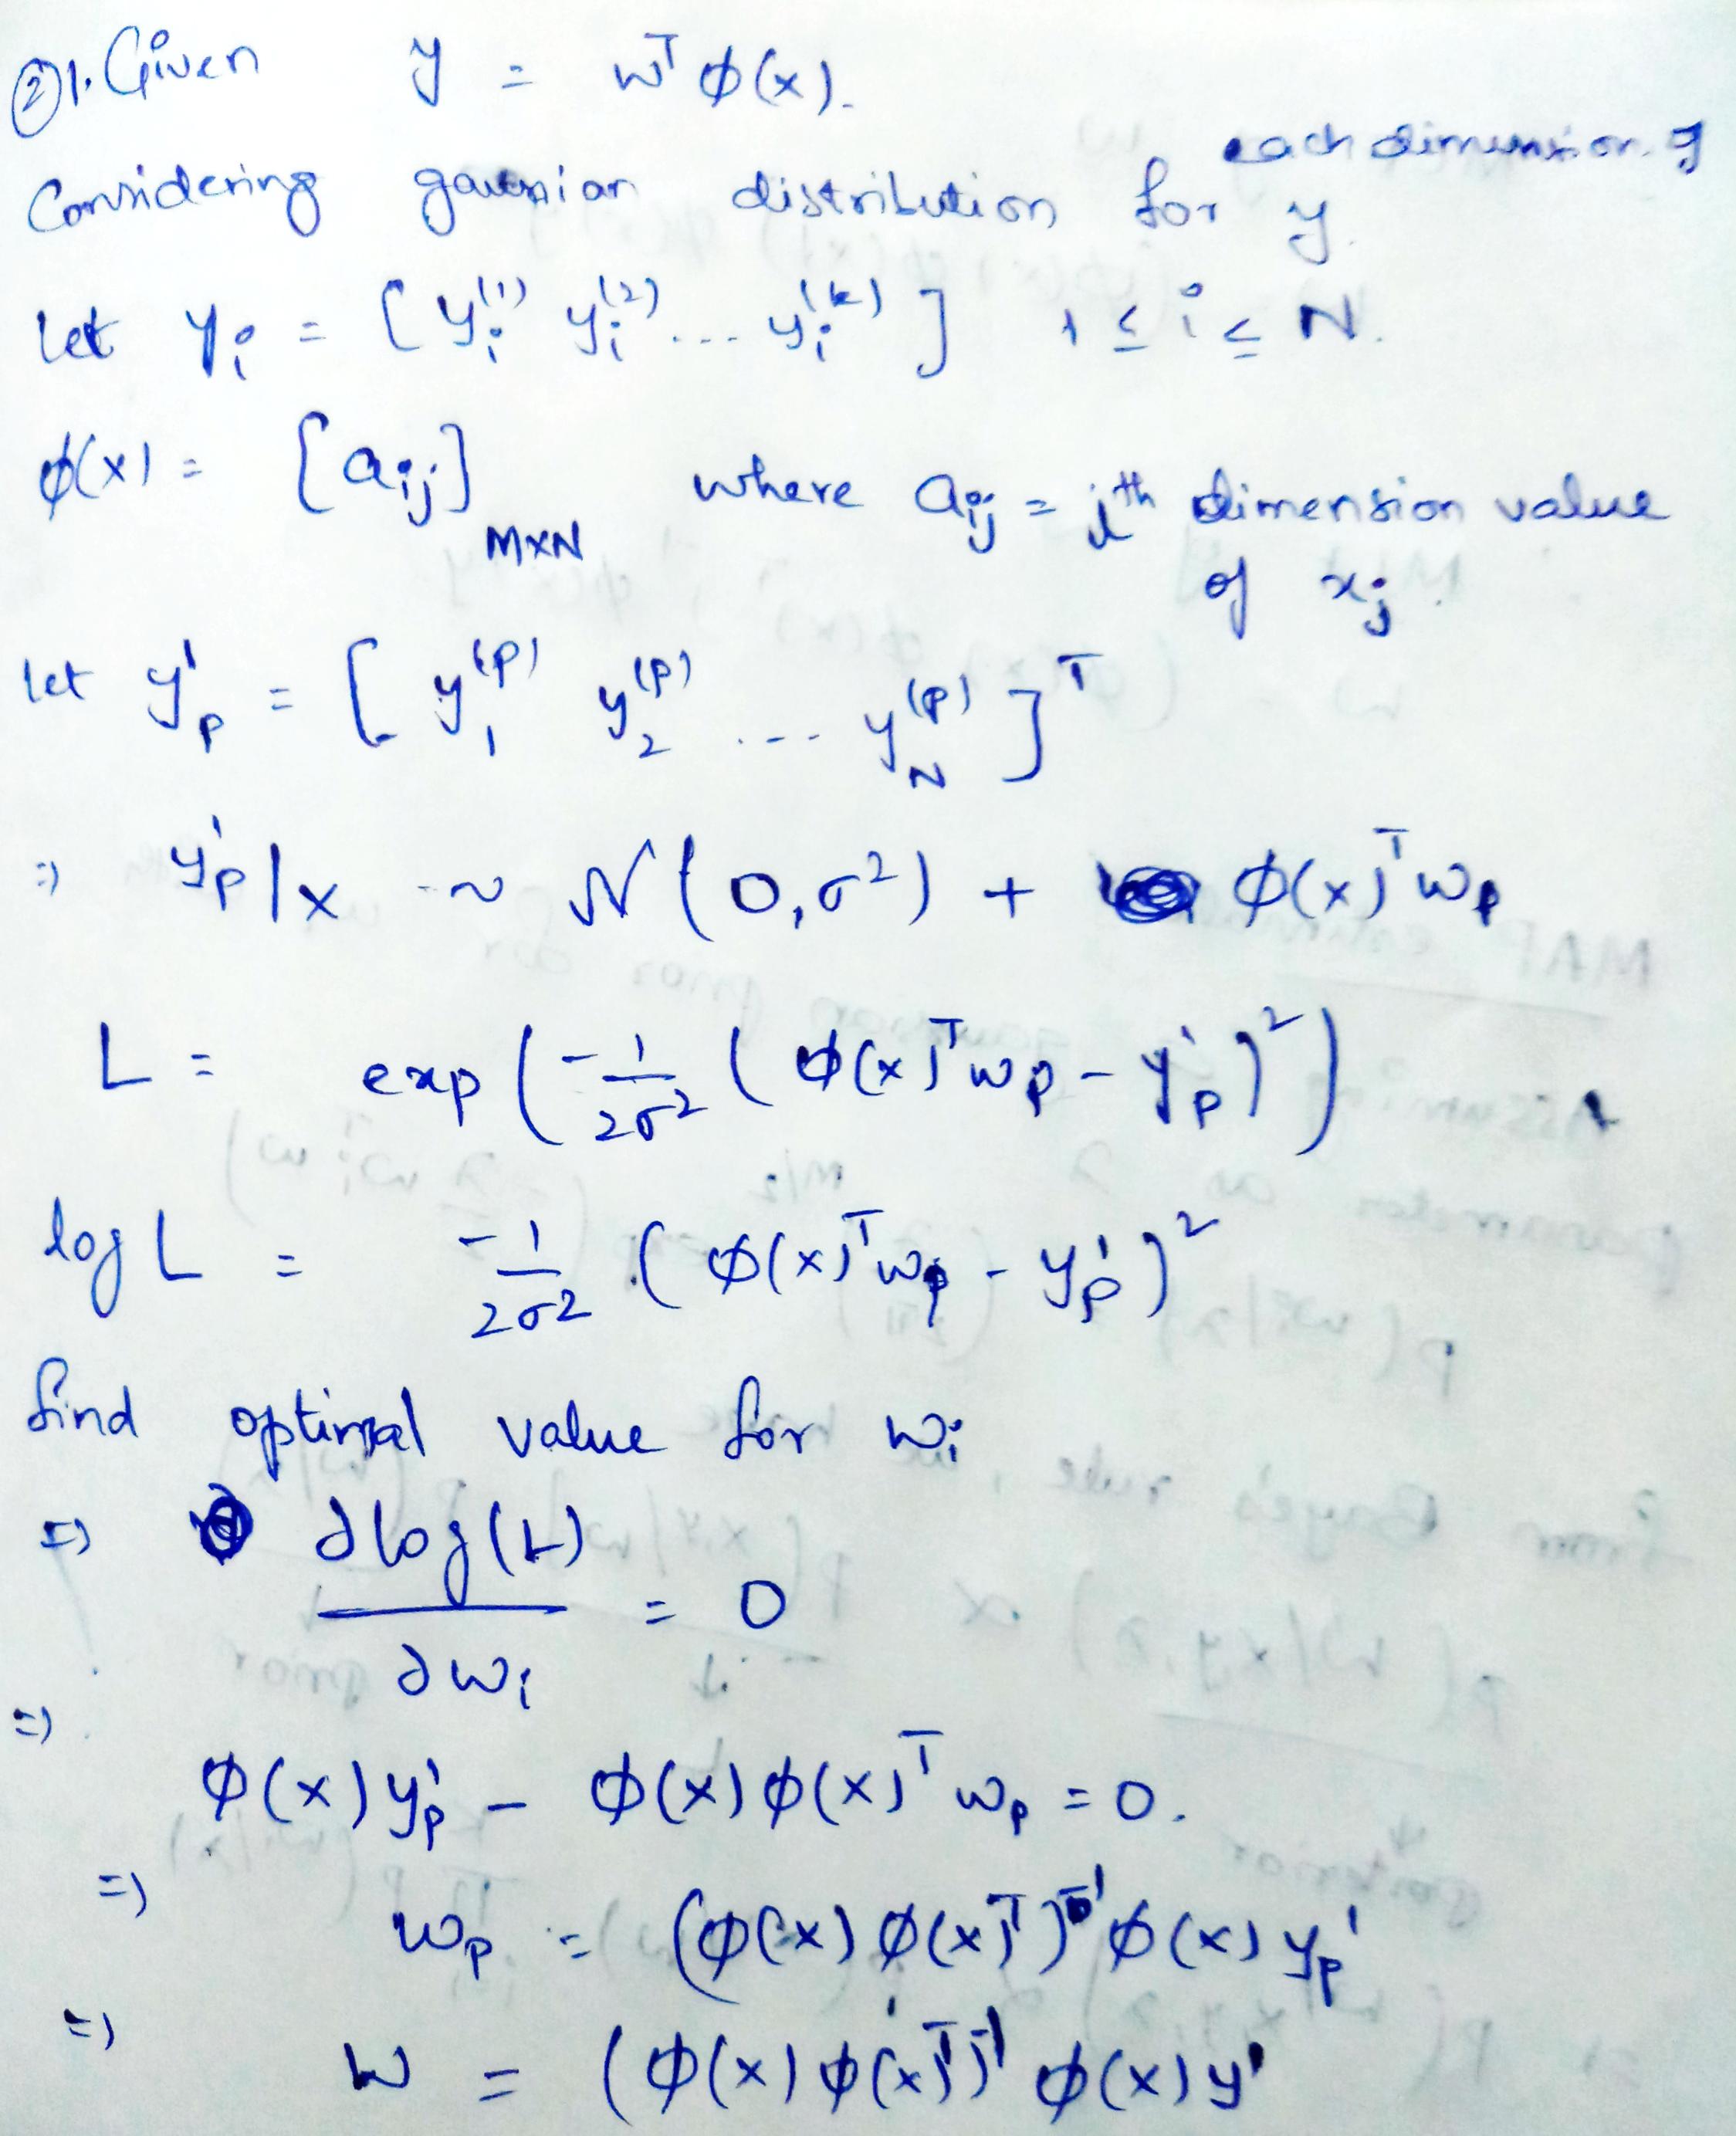 ② 1. Given y = wᵀ φ(x).
each dimension of
Considering gaussian distribution for y.
let yᵢ = [ yᵢ⁽¹⁾ yᵢ⁽²⁾ ... yᵢ⁽ᵏ⁾ ] 1 ≤ i ≤ N.
φ(x) = [aᵢⱼ]_{M×N} where aᵢⱼ = iᵗʰ dimension value
of xⱼ.
let y'_p = [ y₁⁽ᵖ⁾ y₂⁽ᵖ⁾ ... y_N⁽ᵖ⁾ ]ᵀ
=> y'_p | x ~ N(0, σ²) + φ(x)ᵀ w_p
L = exp( -1/2σ² ( φ(x)ᵀ w_p - y'_p )² )
log L = -1/2σ² ( φ(x)ᵀ w_p - y'_p )²
find optimal value for wᵢ
=> ∂ log(L) / ∂ wᵢ = 0
=> φ(x) y'_p - φ(x) φ(x)ᵀ w_p = 0.
=> w_p = (φ(x) φ(x)ᵀ)⁻¹ φ(x) y'_p
=> W = (φ(x) φ(x)ᵀ)⁻¹ φ(x) y'